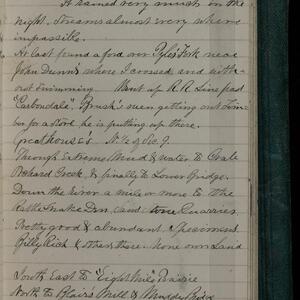 It rained very much in the
night. Streams almost every where
impassible.
At last found a ford over Pyle's Fork near
John Dunn's where I crossed and with-
out swimming. Went up R.R. Line past
"Carbondale". men getting out Tim-
ber for a store he is putting up there.
Greathouse's N½ of Sec. 9.
Through extreme Mud & water to
Orchard Creek, & finally to Lower Bridge.
Down the river a mile or more to the
Rattle Snake Den, and Stone Quarries.
Pretty good & abundant.
Billy Rich & others there. None own Land
South East to "Eight Mile" Prairie
North to Blair's Mill & Muddy Bridge